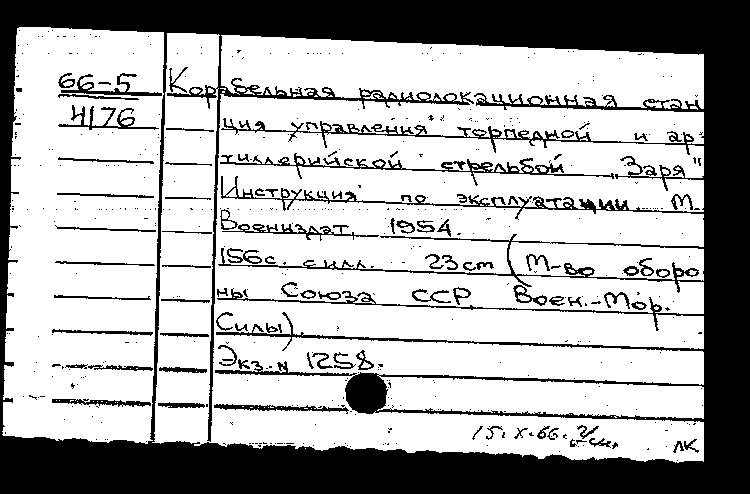 66-5 Корабельная радиолокационная стан
4176 ция управления торпедной и ар-
тиллерийской стрельбой „Заря"
Инструкция по эксплуатации. М.
Воениздат, 1954.
156с. с илл. 23cm (М-во оборо
ны Союза ССР. Воен.-Мор.
Силы).
Экз. N 1258.
15.X.66. ЛК